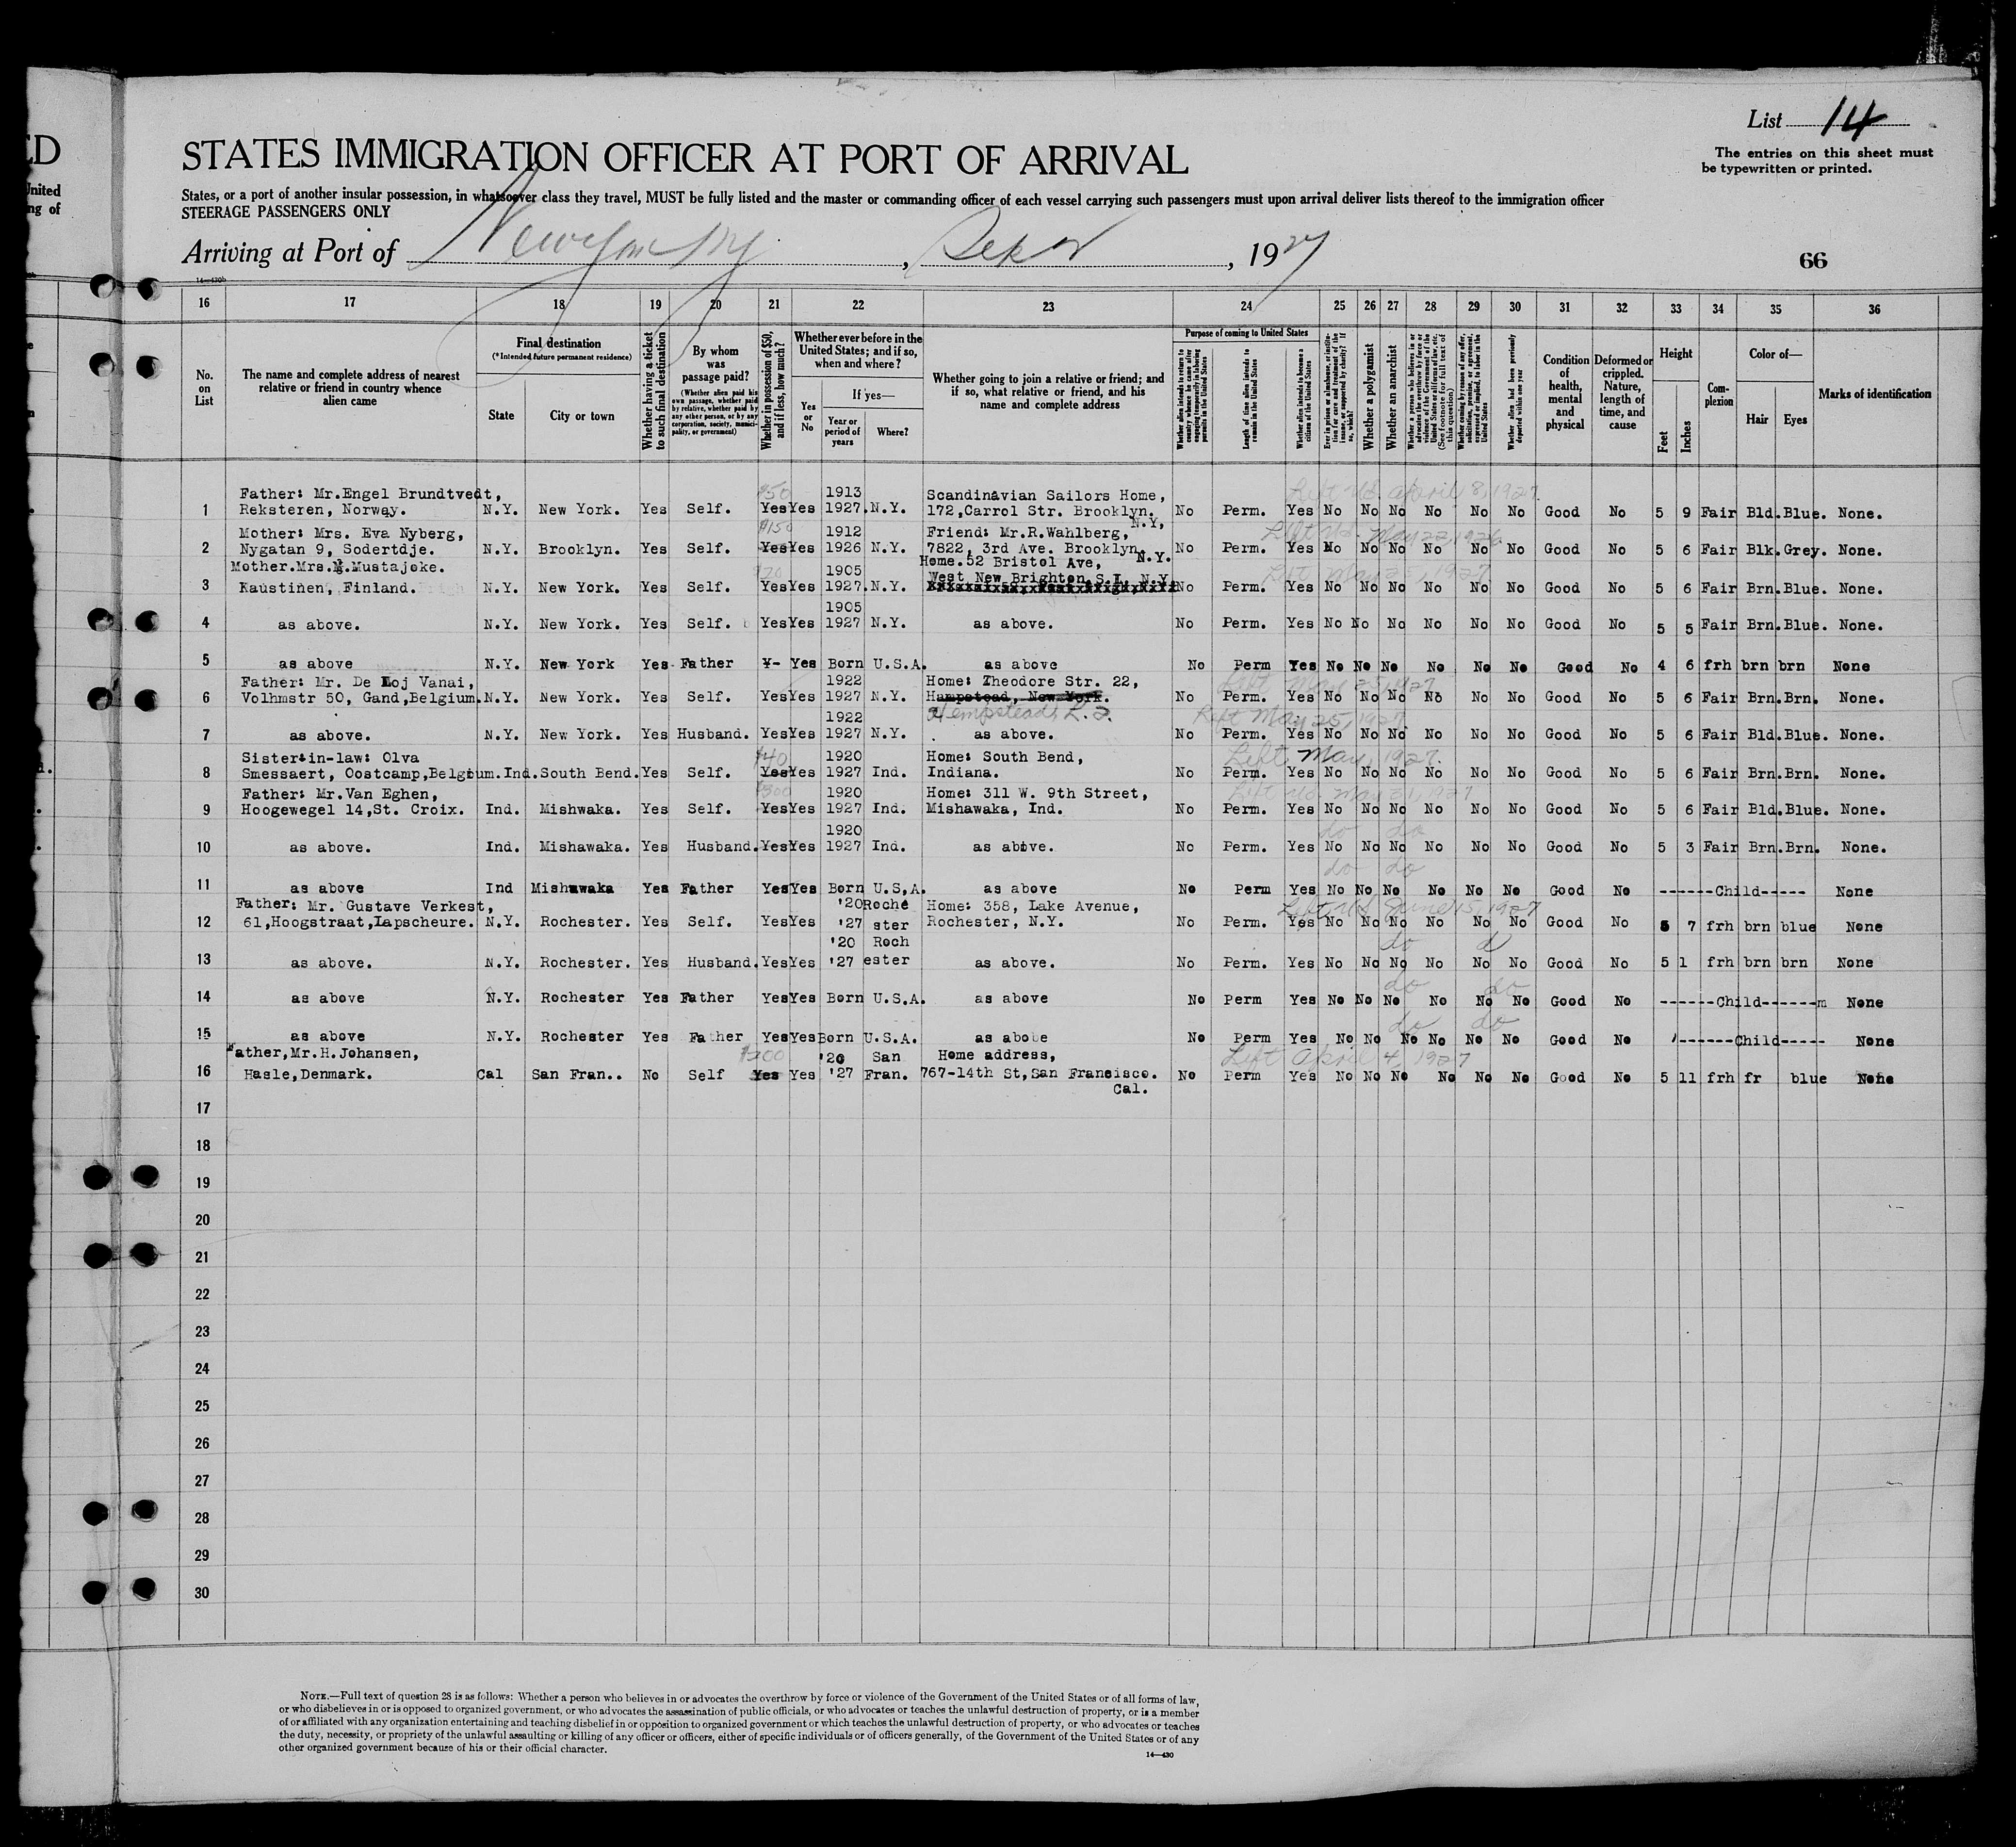 ED
United
ng of
List 14
The entries on this sheet must
be typewritten or printed.
STATES IMMIGRATION OFFICER AT PORT OF ARRIVAL
States, or a port of another insular possession, in whatsoever class they travel, MUST be fully listed and the master or commanding officer of each vessel carrying such passengers must upon arrival deliver lists thereof to the immigration officer
STEERAGE PASSENGERS ONLY
Arriving at Port of New York NY, , 1927
66
14—430b
16 17 18 19 20 21 22 23 24 25 26 27 28 29 30 31 32 33 34 35 36
No. on List
The name and complete address of nearest relative or friend in country whence alien came
Final destination
(*Intended future permanent residence)
State
City or town
Whether having a ticket to such final destination
By whom was passage paid?
(Whether alien paid his own passage, whether paid by relative, whether paid by any other person, or by any corporation, society, municipality, or government)
Whether in possession of $50, and if less, how much?
Whether ever before in the United States; and if so, when and where?
Yes or No
If yes—
Year or period of years
Where?
Whether going to join a relative or friend; and if so, what relative or friend, and his name and complete address
Purpose of coming to United States
Whether alien intends to return to country whence he came after engaging temporarily in laboring pursuits in the United States
Length of time alien intends to remain in the United States
Whether alien intends to become a citizen of the United States
Ever in prison or almshouse, or institution for care and treatment of the insane, or supported by charity? If so, which?
Whether a polygamist
Whether an anarchist
Whether a person who believes in or advocates the overthrow by force or violence of the Government of the United States or all forms of law, etc. (See footnote for full text of this question)
Whether coming by reason of any offer, solicitation, promise, or agreement, expressed or implied, to labor in the United States
Whether alien had been previously deported within one year
Condition of health, mental and physical
Deformed or crippled. Nature, length of time, and cause
Height
Feet
Inches
Complexion
Color of—
Hair
Eyes
Marks of identification
$50 1913 Left US. April 8, 1927
Father: Mr.Engel Brundtvedt, Scandinavian Sailors Home,
1 Reksteren, Norway. N.Y. New York. Yes Self. Yes Yes 1927. N.Y. 172,Carrol Str. Brooklyn. N.Y, No Perm. Yes No No No No No No Good No 5 9 Fair Bld. Blue. None.
Mother: Mrs. Eva Nyberg, $150 1912 Friend: Mr.R.Wahlberg, Left US. May 22, 1926
2 Nygatan 9, Sodertdje. N.Y. Brooklyn. Yes Self. Yes Yes 1926 N.Y. 7822, 3rd Ave. Brooklyn, N.Y. No Perm. Yes No No No No No No Good No 5 6 Fair Blk. Grey. None.
Mother.Mrs.M.Mustajoke. 1905 Home.52 Bristol Ave, West New Brighton S.I. N.Y.
3 Kaustinen, Finland. N.Y. New York. Yes Self. Yes Yes 1927. N.Y. No Perm. Yes No No No No No No Good No 5 6 Fair Brn. Blue. None.
1905
4 as above. N.Y. New York. Yes Self. Yes Yes 1927 N.Y. as above. No Perm. Yes No No No No No No Good No 5 5 Fair Brn. Blue. None.
5 as above N.Y. New York Yes Father Y- Yes Born U.S.A. as above No Perm Yes No No No No No No Good No 4 6 frh brn brn None
Father: Mr. De Loj Vanai, 1922 Home: Theodore Str. 22, Left May 25, 1927
6 Volhmstr 50, Gand,Belgium. N.Y. New York. Yes Self. Yes Yes 1927 N.Y. Hampstead, New York. No Perm. Yes No No No No No No Good No 5 6 Fair Brn. Brn. None.
1922 Hempstead, L.I. Left May 25, 1927
7 as above. N.Y. New York. Yes Husband. Yes Yes 1927 N.Y. as above. No Perm. Yes No No No No No No Good No 5 6 Fair Bld. Blue. None.
Sister:in-law: Olva $40 1920 Home: South Bend, Left May, 1927.
8 Smessaert, Oostcamp,Belgium. Ind. South Bend. Yes Self. Yes Yes 1927 Ind. Indiana. No Perm. Yes No No No No No No Good No 5 6 Fair Brn. Brn. None.
Father: Mr.Van Eghen, $300 1920 Home: 311 W. 9th Street, Left US. May 21, 1927
9 Hoogewegel 14,St. Croix. Ind. Mishwaka. Yes Self. Yes Yes 1927 Ind. Mishawaka, Ind. No Perm. Yes No No No No No No Good No 5 6 Fair Bld. Blue. None.
1920 do do
10 as above. Ind. Mishawaka. Yes Husband. Yes Yes 1927 Ind. as above. No Perm. Yes No No No No No No Good No 5 3 Fair Brn. Brn. None.
do do
11 as above Ind Mishawaka Yes Father Yes Yes Born U.S,A. as above No Perm Yes No No No No No No Good No ------Child----- None
Father: Mr. Gustave Verkest, '20 Roche Home: 358, Lake Avenue, Left US June 15, 1927
12 61,Hoogstraat,Lapscheure. N.Y. Rochester. Yes Self. Yes Yes '27 ster Rochester, N.Y. No Perm. Yes No No No No No No Good No 5 7 frh brn blue None
'20 Roch do d
13 as above. N.Y. Rochester. Yes Husband. Yes Yes '27 ester as above. No Perm. Yes No No No No No No Good No 5 1 frh brn brn None
do do
14 as above N.Y. Rochester Yes Father Yes Yes Born U.S.A. as above No Perm Yes No No No No No No Good No ------Child------m None
do do
15 as above N.Y. Rochester Yes Father Yes Yes Born U.S.A. as above No Perm Yes No No No No No No Good No -------Child----- None
Father,Mr.H.Johansen, $200 '20 San Home address, Left April 4, 1927
16 Hasle,Denmark. Cal San Fran.. No Self Yes Yes '27 Fran. 767-14th St,San Francisco. Cal. No Perm Yes No No No No No No Good No 5 11 frh fr blue None
17
18
19
20
21
22
23
24
25
26
27
28
29
30
NOTE.—Full text of question 28 is as follows: Whether a person who believes in or advocates the overthrow by force or violence of the Government of the United States or of all forms of law,
or who disbelieves in or is opposed to organized government, or who advocates the assassination of public officials, or who advocates or teaches the unlawful destruction of property, or is a member
of or affiliated with any organization entertaining and teaching disbelief in or opposition to organized government or which teaches the unlawful destruction of property, or who advocates or teaches
the duty, necessity, or propriety of the unlawful assaulting or killing of any officer or officers, either of specific individuals or of officers generally, of the Government of the United States or of any
other organized government because of his or their official character.
14—430